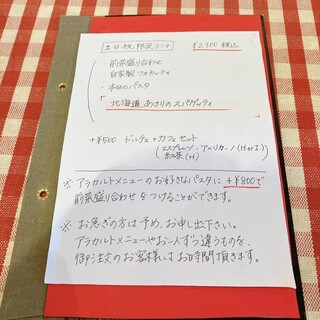 土日祝限定ランチ ¥2,300 税込
前菜盛り合わせ
自家製フォカッチャ
・本日のパスタ
「北海道 あさりのスパゲッティ
+¥500 ドルチェ+カフェセット
(エスプレッソ・アメリカーノ(HorI)
紅茶(H))
※アラカルトメニューのお好きなパスタに+¥800で
前菜盛り合わせをつけることができます。
※お急ぎの方は予め、お申し出下さい。
アラカルトメニューやお一人ずつ違うものを、
御注文のお客様はお時間頂きます。